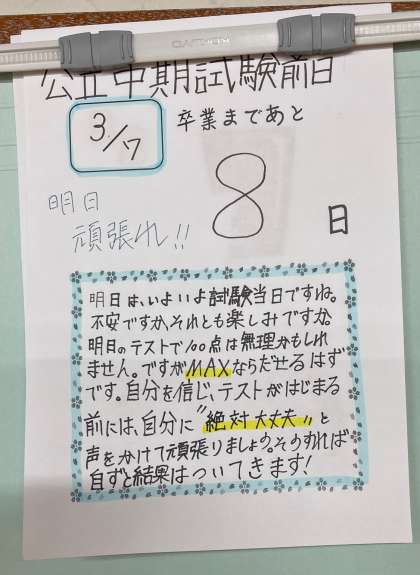 公立中期試験前日
3/7
卒業まであと
8
日
明日
頑張れ!!
明日は、いよいよ試験当日ですね。
不安ですか、それとも楽しみですか。
明日のテストで100点は無理かもしれ
ません。ですがMAXならだせるはず
です。自分を信じ、テストがはじまる
前には、自分に〝絶対大丈夫〟と
声をかけて頑張りましょう。そうすれば
自ずと結果はついてきます!